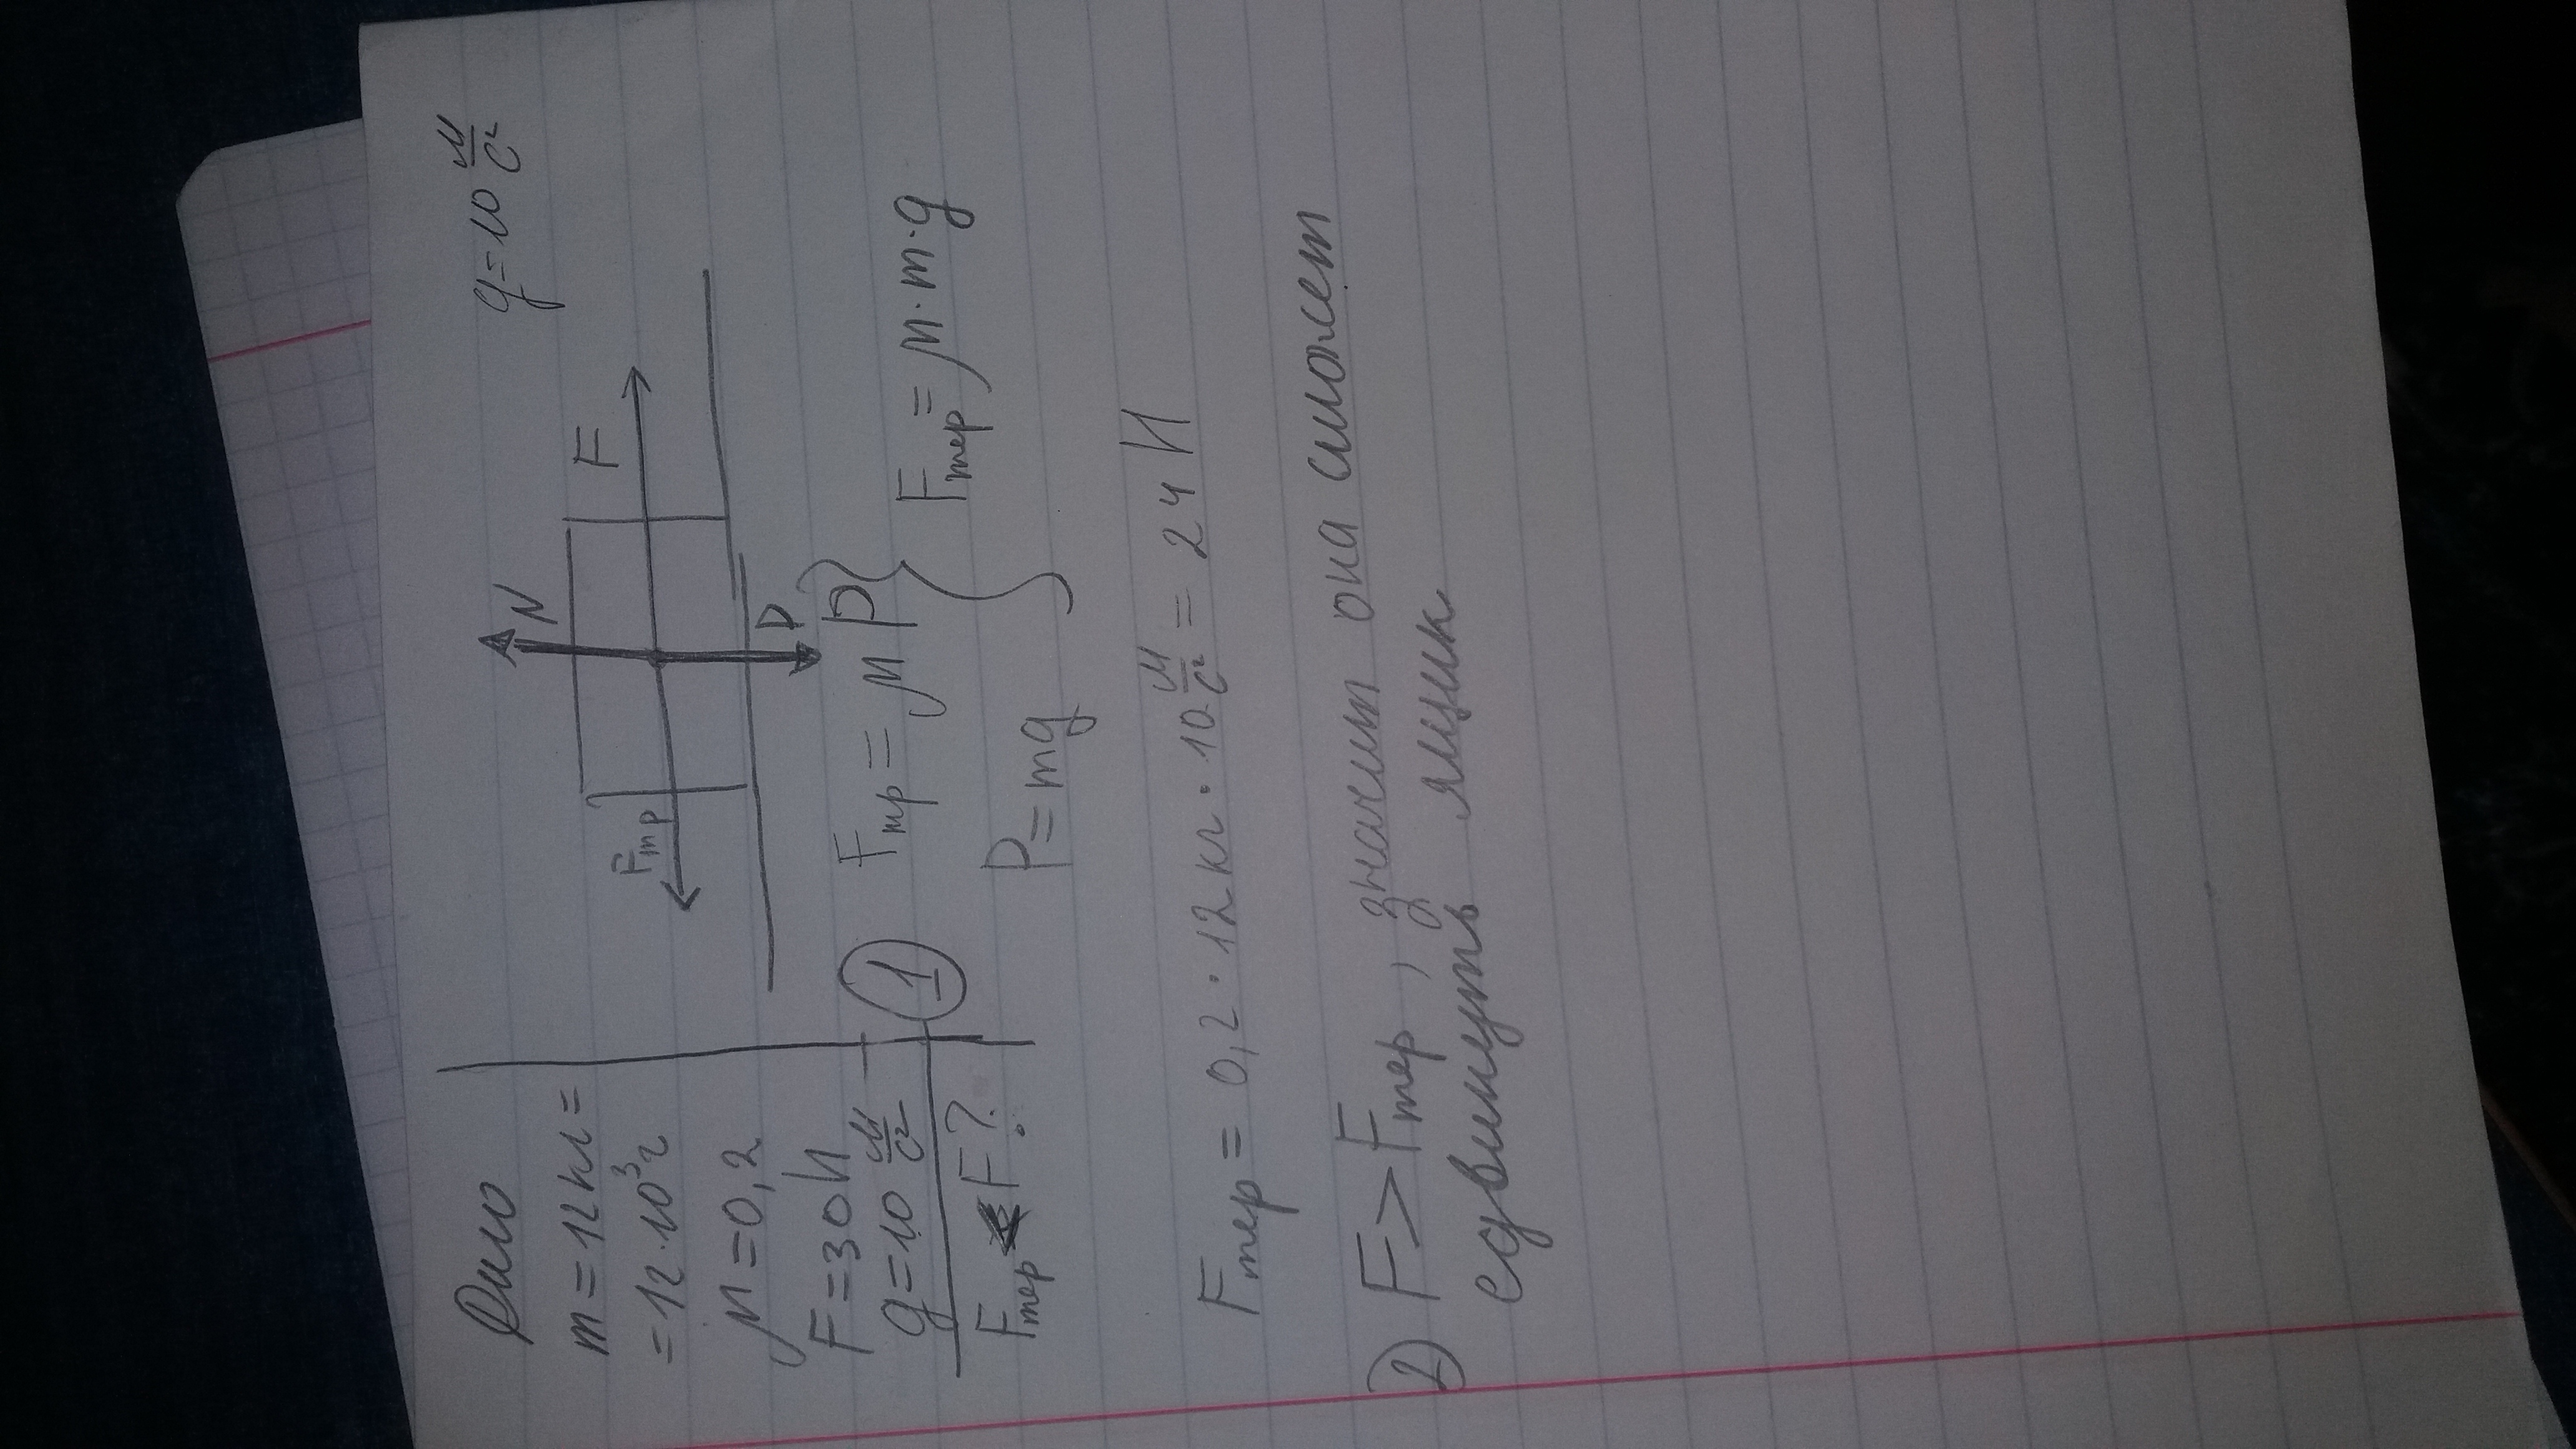 Дано
m = 12 кг =
= 12·10³ г
μ = 0,2
F = 30 Н
g = 10 м/с²
Fтер F?
g = 10 м/с²
N
Fтр
F
P
1 Fтр = μ P } Fтер = μ·m·g
P = mg
Fтер = 0,2 · 12 кг · 10 м/с² = 24 Н
2 F > Fтер, значит она сможет
сдвинуть ящик